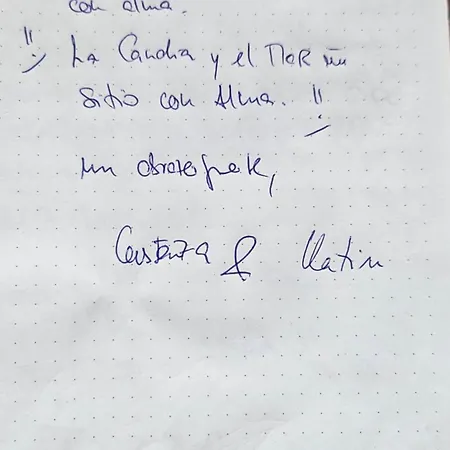 con alma.
La Concha y el MOR un
sitio con Alma. !!
un abrazo fuerte,
Constanza & Martin